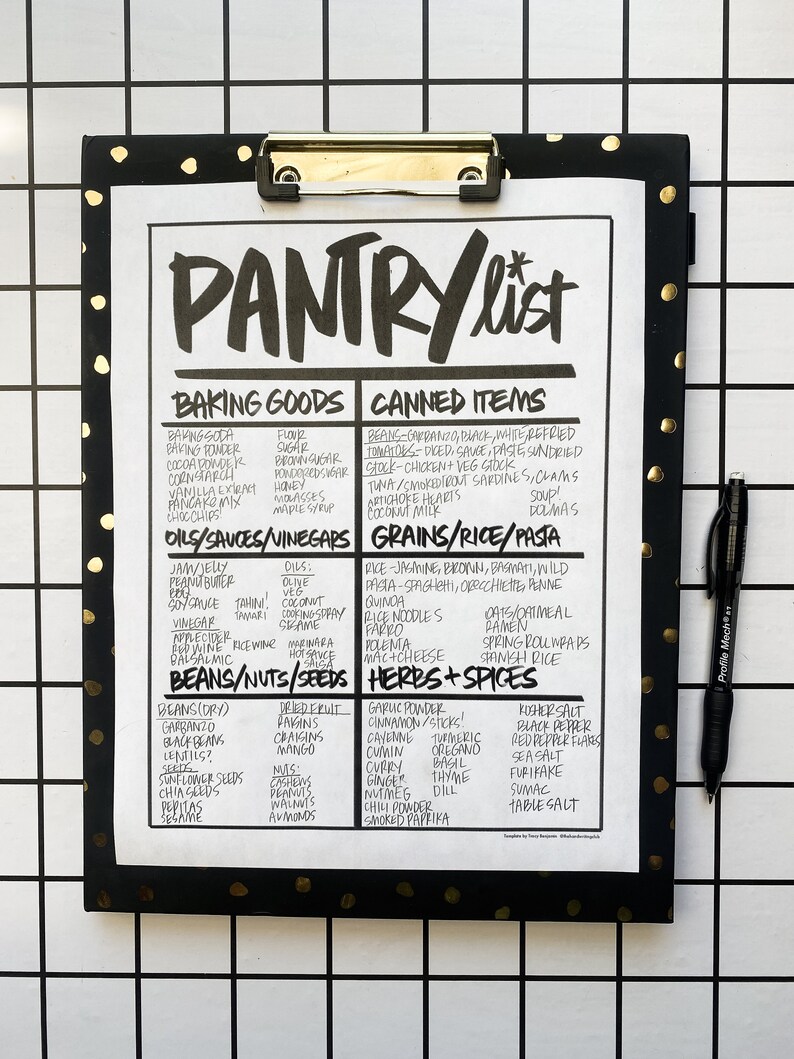 PANTRY list
BAKING GOODS
BAKING SODA
BAKING POWDER
COCOA POWDER
CORNSTARCH
VANILLA EXTRACT
PANCAKE MIX
CHOC CHIPS!
FLOUR
SUGAR
BROWN SUGAR
POWDERED SUGAR
HONEY
MOLASSES
MAPLE SYRUP
CANNED ITEMS
BEANS-GARBANZO, BLACK, WHITE, REFRIED
TOMATOES- DICED, SAUCE, PASTE, SUNDRIED
STOCK- CHICKEN + VEG STOCK
TUNA/SMOKED TROUT SARDINES, CLAMS
ARTICHOKE HEARTS
COCONUT MILK
SOUP!
DOLMAS
OILS/SAUCES/VINEGARS
JAM/JELLY
PEANUT BUTTER
BBQ
SOY SAUCE
TAHINI!
TAMARI
VINEGAR
APPLE CIDER
RED WINE
BALSALMIC
RICE WINE
OILS:
OLIVE
VEG
COCONUT
COOKING SPRAY
SESAME
MARINARA
HOT SAUCE
SALSA
GRAINS/RICE/PASTA
RICE -JASMINE, BROWN, BASMATI, WILD
PASTA -SPAGHETTI, ORECCHIETTE, PENNE
QUINOA
RICE NOODLES
FARRO
POLENTA
MAC + CHEESE
OATS/OATMEAL
RAMEN
SPRING ROLL WRAPS
SPANISH RICE
BEANS/NUTS/SEEDS
BEANS (DRY)
GARBANZO
BLACK BEANS
LENTILS?
SEEDS
SUNFLOWER SEEDS
CHIA SEEDS
PEPITAS
SESAME
DRIED FRUIT
RAISINS
CRAISINS
MANGO
NUTS:
CASHEWS
PEANUTS
WALNUTS
ALMONDS
HERBS + SPICES
GARLIC POWDER
CINNAMON/STICKS!
CAYENNE
CUMIN
CURRY
GINGER
NUTMEG
CHILI POWDER
SMOKED PAPRIKA
TURMERIC
OREGANO
BASIL
THYME
DILL
KOSHER SALT
BLACK PEPPER
RED PEPPER FLAKES
SEA SALT
FURIKAKE
SUMAC
TABLE SALT
Template by Tracy Benjamin @thehandwritingclub
Profile Mech® 0.7